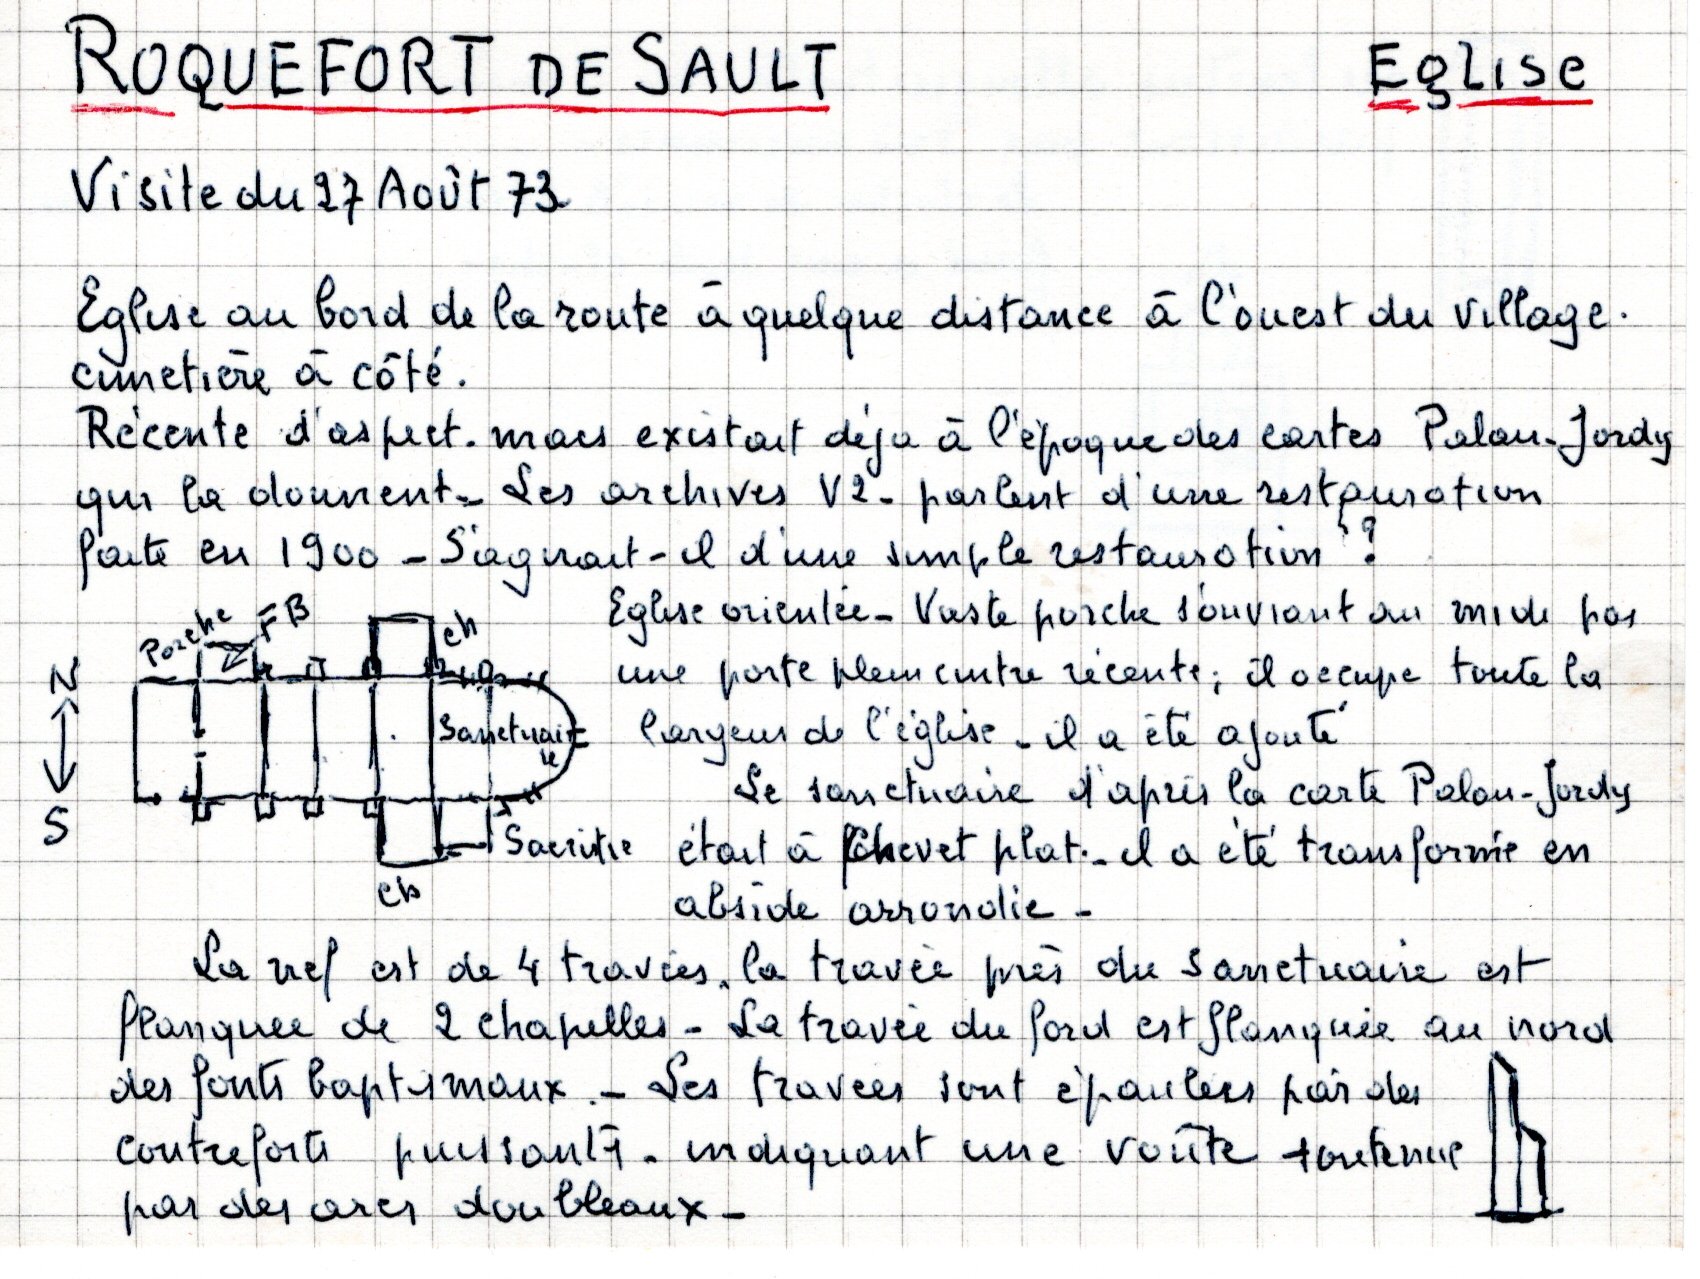 ROQUEFORT DE SAULT Eglise
Visite du 27 Août 73
Eglise au bord de la route à quelque distance à l'ouest du village.
cimetière à côté.
Récente d'aspect. mais existait déja à l'époque des cartes Palau-Jordy
qui la donnent - Les archives V2 - parlent d'une restauration
faite en 1900 - S'agirait-il d'une simple restauration ?
Eglise orientée - Vaste porche s'ouvrant au midi par
une porte plein cintre récente; il occupe toute la
largeur de l'église - il a été ajouté
Le sanctuaire d'après la carte Palau-Jordy
était à chevet plat - il a été transformé en
abside arrondie -
Porche
FB
ch
N
Sanctuaire
S
Sacristie
ch
La nef est de 4 travées, la travée près du sanctuaire est
flanquée de 2 chapelles - La travée du fond est flanquée au nord
des fonts baptismaux. - Les travées sont épaulées par des
contreforts puissants - indiquant une voûte soutenue
par des arcs doubleaux -